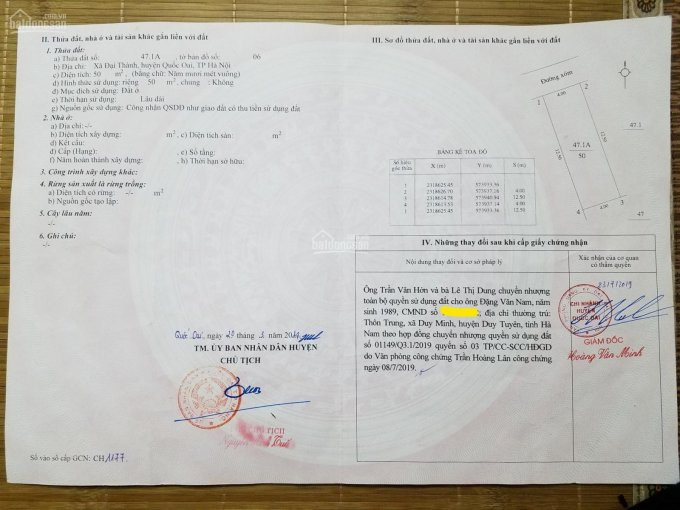 II. Thửa đất, nhà ở và tài sản khác gắn liền với đất
1. Thửa đất:
a) Thửa đất số: 47.1A, tờ bản đồ số: 06
b) Địa chỉ: Xã Đại Thành, huyện Quốc Oai, TP Hà Nội
c) Diện tích: 50 m², (bằng chữ: Năm mươi mét vuông)
d) Hình thức sử dụng: riêng 50 m², chung: Không
đ) Mục đích sử dụng: Đất ở
e) Thời hạn sử dụng: Lâu dài
g) Nguồn gốc sử dụng: Công nhận QSDĐ như giao đất có thu tiền sử dụng đất
2. Nhà ở:
a) Địa chỉ: -/-
b) Diện tích xây dựng: m², c) Diện tích sàn: m²
d) Kết cấu:
đ) Cấp (Hạng): -/- e) Số tầng:
f) Năm hoàn thành xây dựng: h) Thời hạn sở hữu:
3. Công trình xây dựng khác:
4. Rừng sản xuất là rừng trồng:
a) Diện tích có rừng: -/- m²
b) Nguồn gốc tạo lập:
5. Cây lâu năm:
-/-
6. Ghi chú:
-/-
Quốc Oai, ngày
TM. ỦY BAN NHÂN DÂN HUYỆN
CHỦ TỊCH
Số vào sổ cấp GCN: CH 1177
III. Sơ đồ thửa đất, nhà ở và tài sản khác gắn liền với đất
Đường xóm
1 4.00 2
12.50
47.1
47.1A
50
12.50
4 4.00 3
47
BẢNG KÊ TỌA ĐỘ
Số hiệu góc thửa X (m) Y (m) S (m)
1 2318625.45 573933.36
2 2318626.70 573937.16 4.00
3 2318614.78 573940.94 12.50
4 2318613.53 573937.14 4.00
1 2318625.45 573933.36 12.50
IV. Những thay đổi sau khi cấp giấy chứng nhận
Nội dung thay đổi và cơ sở pháp lý
Xác nhận của cơ quan
có thẩm quyền
Ông Trần Văn Hớn và bà Lê Thị Dung chuyển nhượng
toàn bộ quyền sử dụng đất cho ông Đặng Văn Nam, năm
sinh 1989, CMND số ; địa chỉ thường trú:
Thôn Trung, xã Duy Minh, huyện Duy Tuyên, tỉnh Hà
Nam theo hợp đồng chuyển nhượng quyền sử dụng đất
số 01149/Q3.1/2019 quyển số 03 TP/CC-SCC/HĐGD
do Văn phòng công chứng Trần Hoàng Lân công chứng
ngày 08/7/2019.
CHI NHÁNH
HUYỆN
QUỐC OAI
GIÁM ĐỐC
Hoàng Văn Minh
batdongsan